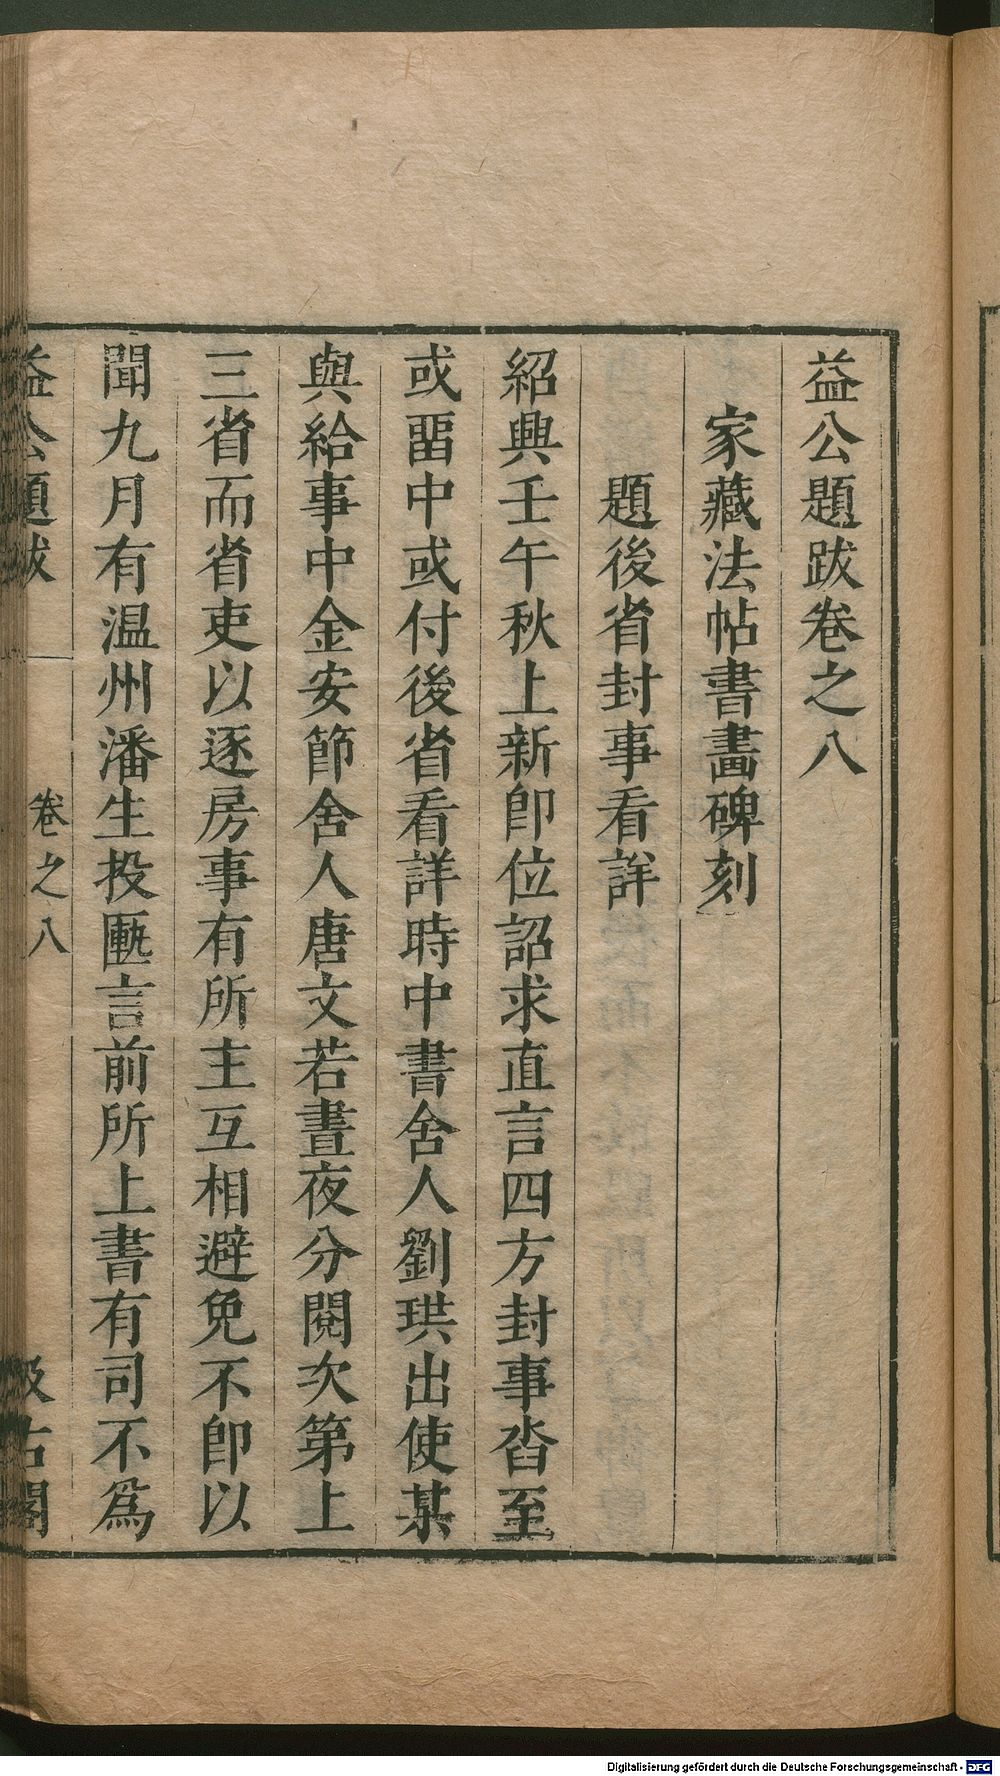 益公題跋卷之八
家藏法帖書畫碑刻
題後省封事看詳
紹興壬午秋上新卽位詔求直言四方封事沓至
或畱中或付後省看詳時中書舍人劉珙出使某
與給事中金安節舍人唐文若晝夜分閱次第上
三省而省吏以逐房事有所主互相避免不卽以
聞九月有溫州潘生投匭言前所上書有司不爲
益公題跋 卷之八 汲古閣
Digitalisierung gefördert durch die Deutsche Forschungsgemeinschaft - DFG